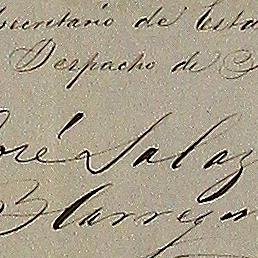 Secretario de Esta
Despacho de
José Salaz
Larreyn